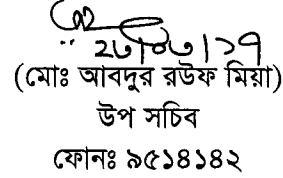 ২৩|০৩|১৭
(মোঃ আবদুর রউফ মিয়া)
উপ সচিব
ফোনঃ ৯৫১৪১৪২